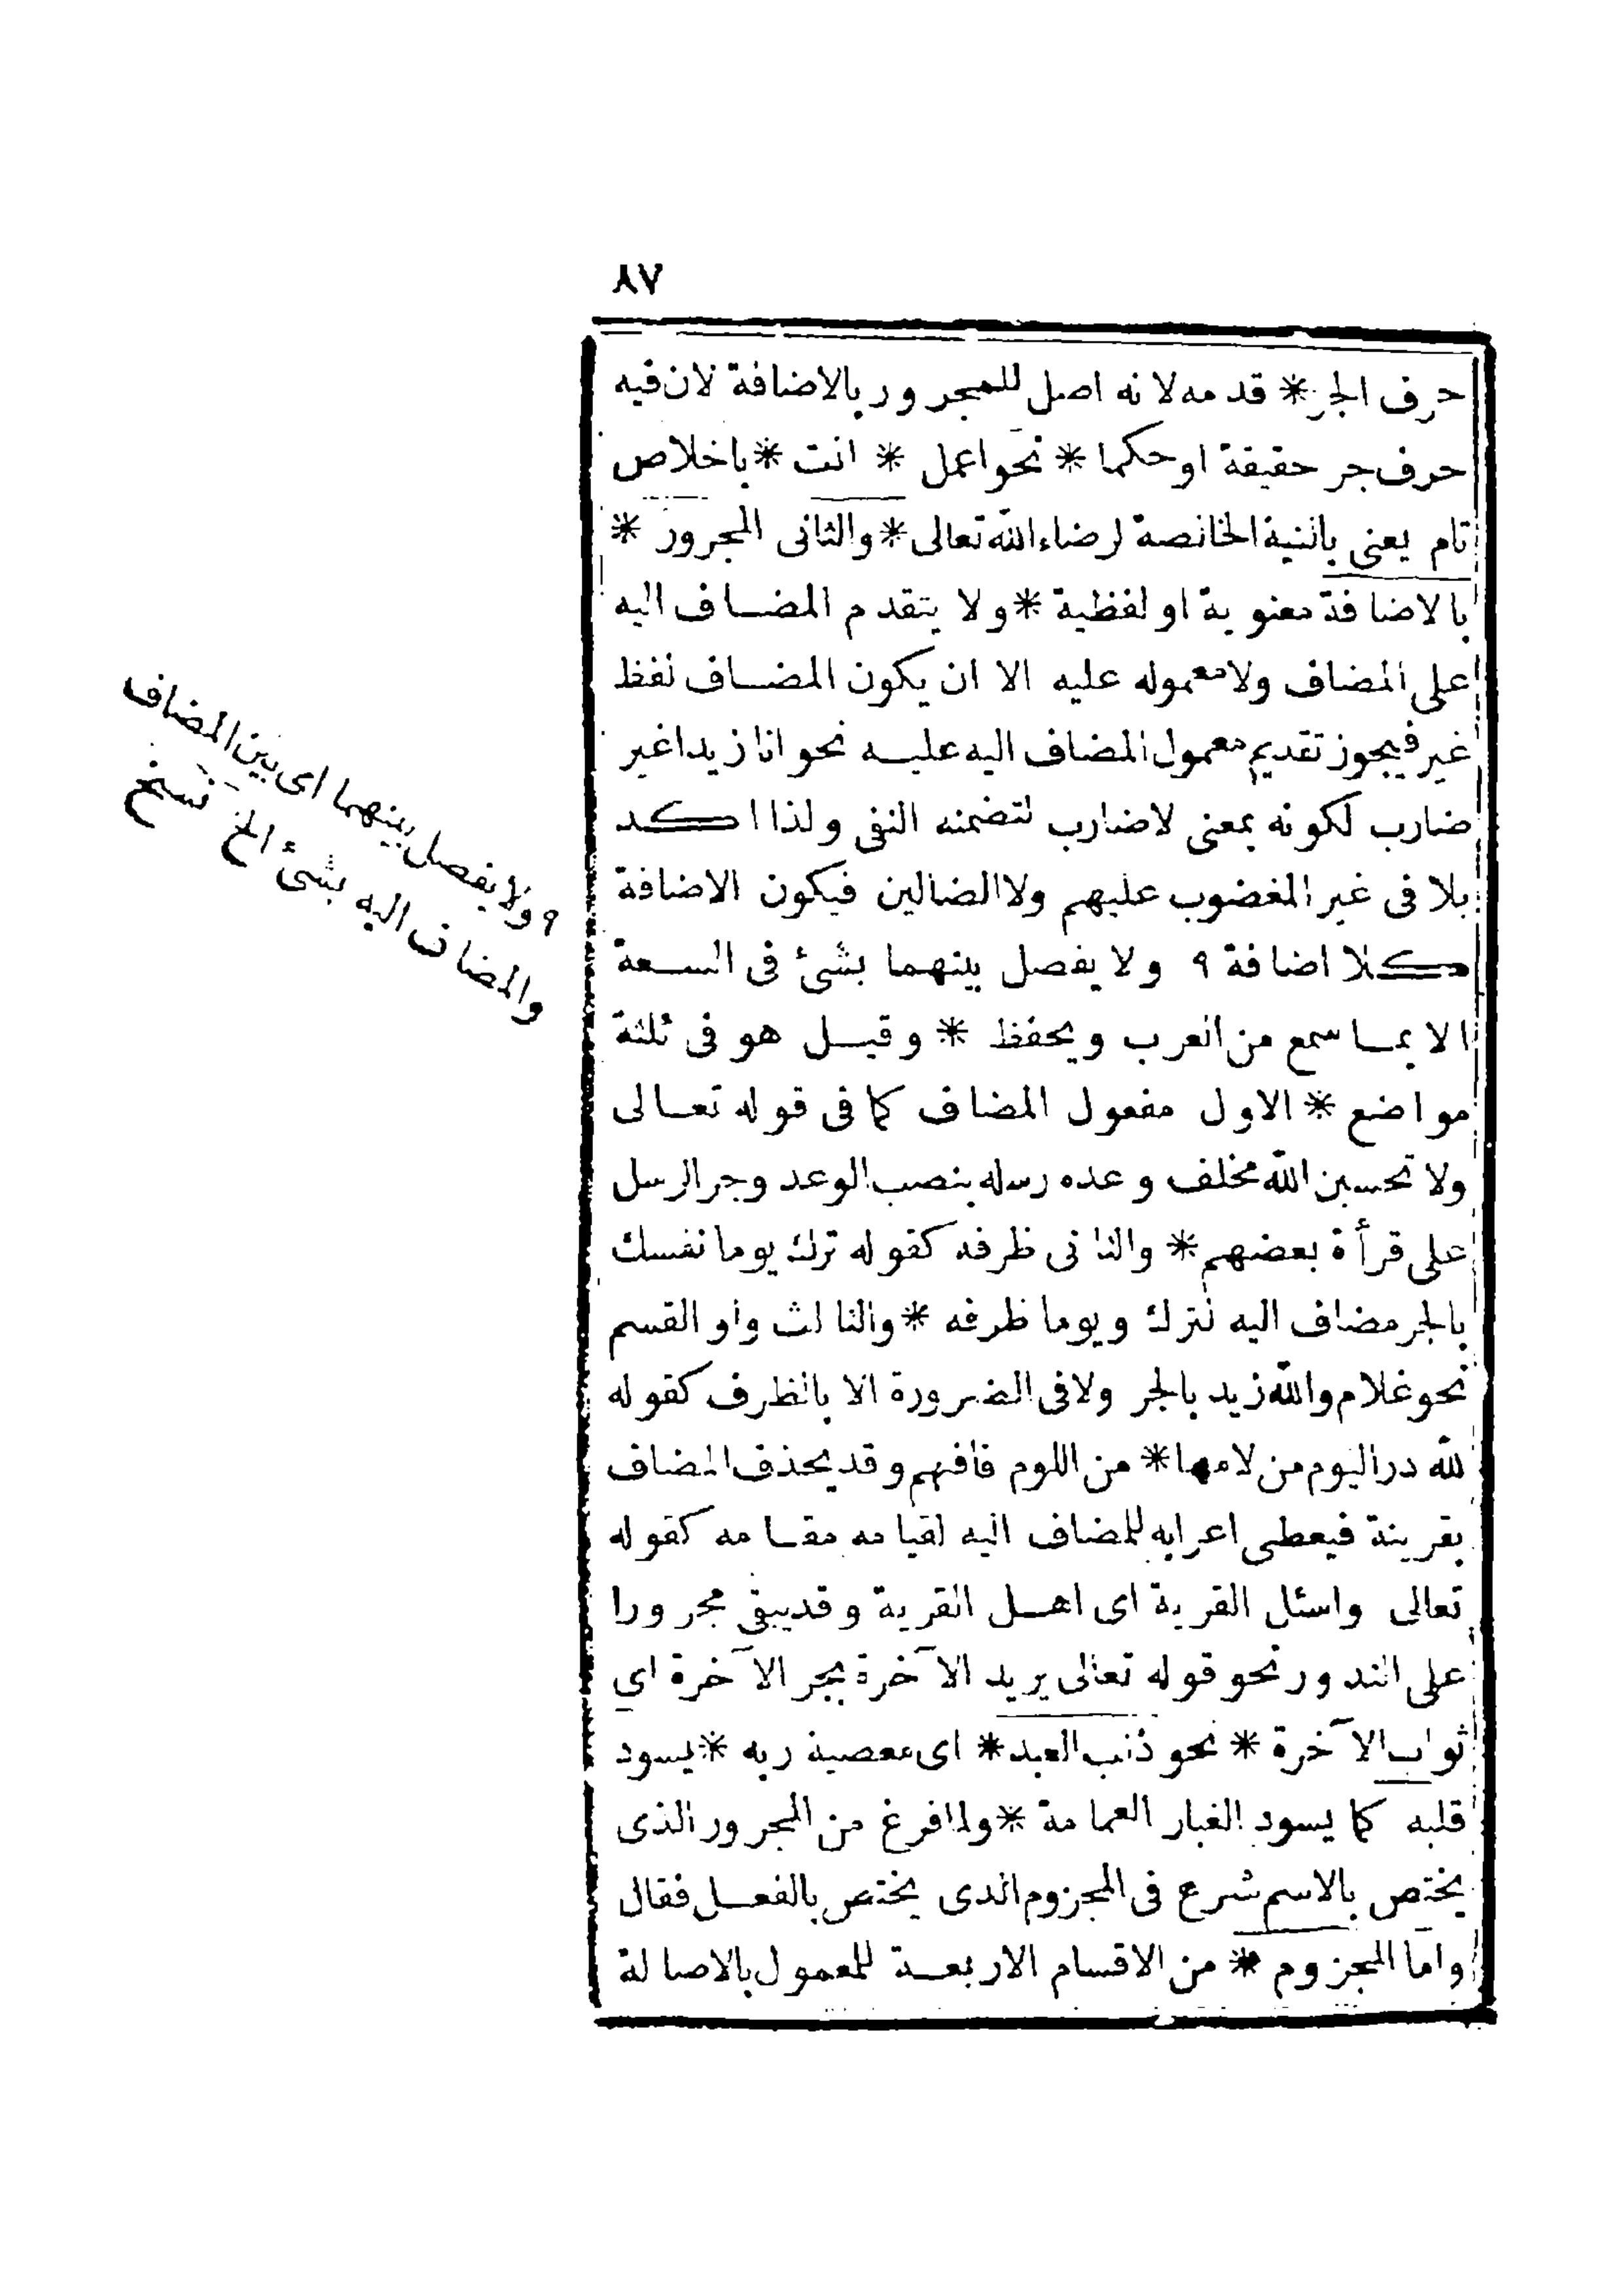 ٨٧
حرف الجر * قدمه لانه اصل للمجرور بالاضافة لان فيه
حرف جر حقيقة او حكما * نحو اعمل * انت * باخلاص
تام يعنى بالنية الخالصة لرضاء الله تعالى * والثانى المجرور *
بالاضافة معنوية او لفظية * ولا يتقدم المضاف اليه
على المضاف ولا معموله عليه الا ان يكون المضاف لفظ
غير فيجوز تقديم معمول المضاف اليه عليه نحو انا زيدا غير
ضارب لكونه بمعنى لا ضارب لتضمنه النفى ولذا اكد
بلا فى غير المغضوب عليهم ولا الضالين فيكون الاضافة
كلا اضافة ٩ ولا يفصل بينهما بشئ فى السعة
الا بما سمع من العرب ويحفظ * وقيل هو فى ثلثة
مواضع * الاول مفعول المضاف كما فى قوله تعالى
ولا تحسبن الله مخلف وعده رسله بنصب الوعد وجر الرسل
على قرأة بعضهم * والثانى ظرفه كقوله ترك يوما نفسك
بالجر مضاف اليه لترك ويوما ظرفه * والثالث واو القسم
نحو غلام والله زيد بالجر ولا فى الضرورة الا بالظرف كقوله
لله در اليوم من لامها * من اللوم فافهم وقد يحذف المضاف
بقرينة فيعطى اعرابه للمضاف اليه لقيامه مقامه كقوله
تعالى واسئل القرية اى اهل القرية وقد يبقى مجرورا
على الندور نحو قوله تعالى يريد الآخرة بجر الآخرة اى
ثواب الآخرة * نحو ذنب العبد * اى معصية ربه * يسود
قلبه كما يسود الغبار العمامة * ولما فرغ من المجرور الذى
يختص بالاسم شرع فى المجزوم الذى يختص بالفعل فقال
واما المجزوم * من الاقسام الاربعة للمعمول بالاصالة
٩ ولا يفصل بينهما اى بين المضاف
والمضاف اليه بشئ الخ نسخ